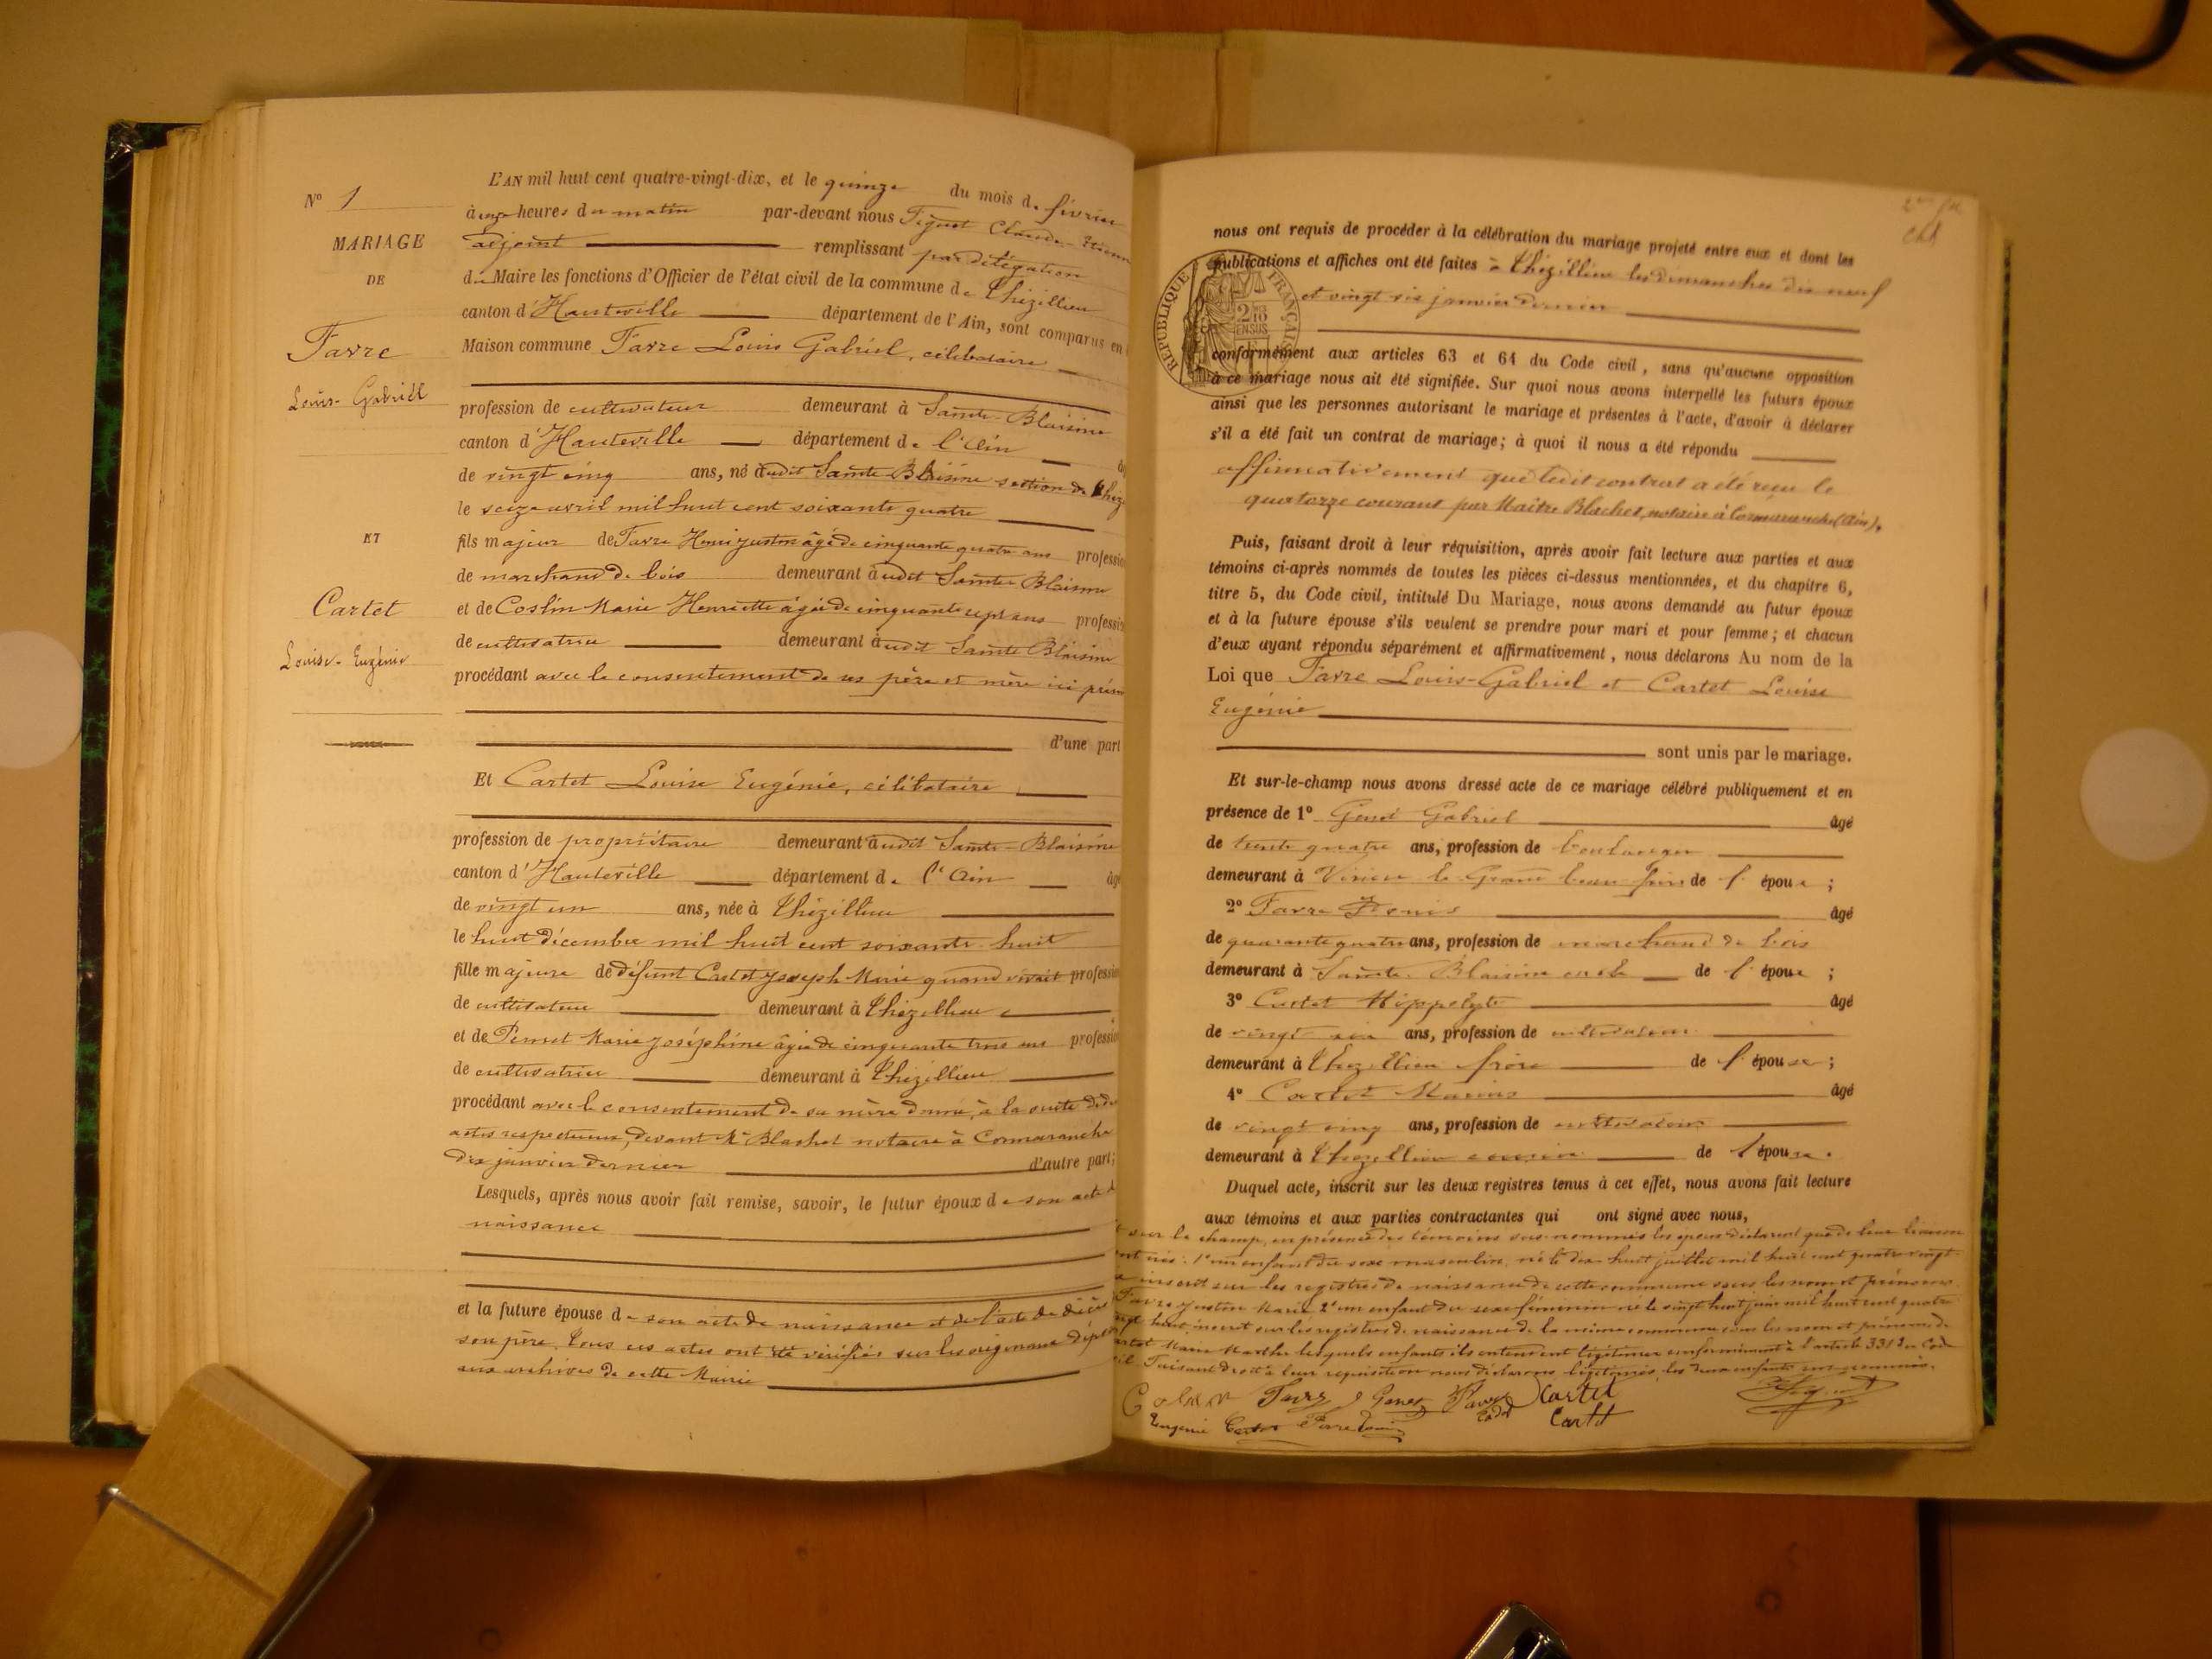 N° 1
MARIAGE
DE
Favre
Louis-Gabriel
ET
Cartet
Louise-Eugénie
L'AN mil huit cent quatre-vingt-dix, et le quinze du mois de février
à onze heures du matin par-devant nous Claude
adjoint remplissant par délégation
du Maire les fonctions d'Officier de l'état civil de la commune de Thézillieu
canton d'Hauteville département de l'Ain, sont comparus en
Maison commune Favre Louis Gabriel, célibataire
profession de cultivateur demeurant à Sainte-Blaisine
canton d'Hauteville département de l'Ain
de vingt cinq ans, né audit Sainte Blaisine section de Théz
le seize avril mil huit cent soixante quatre
fils majeur de Favre Henri Justin âgé de cinquante quatre ans professio
de marchand de bois demeurant audit Sainte Blaisine
et de Costin Marie Henriette âgée de cinquante sept ans professio
de cultivatrice demeurant audit Sainte Blaisine
procédant avec le consentement de ses père et mère ici prése
d'une part
Et Cartet Louise Eugénie, célibataire
profession de propriétaire demeurant audit Sainte-Blaisine
canton d'Hauteville département de l'Ain âgé
de vingt un ans, née à Thézillieu
le huit décembre mil huit cent soixante-huit
fille majeure de défunt Cartet Joseph Marie quand vivait professio
de cultivateur demeurant à Thézillieu
et de Pernet Marie Joséphine âgée de cinquante trois ans professio
de cultivatrice demeurant à Thézillieu
procédant avec le consentement de sa mère donné, à la suite de
actes respectueux, devant Me Blachet notaire à Cormaranche
dix janvier dernier d'autre part;
Lesquels, après nous avoir fait remise, savoir, le futur époux de son acte d
naissance
et la future épouse de son acte de naissance et de l'acte de décès
son père. Tous ces actes ont été vérifiés sur les originaux dépo
aux archives de cette Mairie
nous ont requis de procéder à la célébration du mariage projeté entre eux et dont les
publications et affiches ont été faites à Thézillieu les dimanches dix neuf
et vingt six janvier dernier
RÉPUBLIQUE FRANÇAISE
conformément aux articles 63 et 64 du Code civil, sans qu'aucune opposition
à ce mariage nous ait été signifiée. Sur quoi nous avons interpellé les futurs époux
ainsi que les personnes autorisant le mariage et présentes à l'acte, d'avoir à déclarer
s'il a été fait un contrat de mariage; à quoi il nous a été répondu
affirmativement que ledit contrat a été reçu le
quatorze courant par Maître Blachet, notaire à Cormaranche (Ain).
Puis, faisant droit à leur réquisition, après avoir fait lecture aux parties et aux
témoins ci-après nommés de toutes les pièces ci-dessus mentionnées, et du chapitre 6,
titre 5, du Code civil, intitulé Du Mariage, nous avons demandé au futur époux
et à la future épouse s'ils veulent se prendre pour mari et pour femme; et chacun
d'eux ayant répondu séparément et affirmativement, nous déclarons Au nom de la
Loi que Favre Louis-Gabriel et Cartet Louise
Eugénie
sont unis par le mariage.
Et sur-le-champ nous avons dressé acte de ce mariage célébré publiquement et en
présence de 1° Gabriel âgé
de trente quatre ans, profession de boulanger
demeurant à Virieu le Grand beau frère de l'époux;
2° Favre Denis âgé
de quarante quatre ans, profession de marchand de bois
demeurant à Sainte-Blaisine oncle de l'époux;
3° Cartet Hippolyte âgé
de vingt six ans, profession de cultivateur
demeurant à Thézillieu frère de l'épouse;
4° Cartet Marius âgé
de vingt cinq ans, profession de cultivateur
demeurant à Thézillieu cousin de l'épouse.
Duquel acte, inscrit sur les deux registres tenus à cet effet, nous avons fait lecture
aux témoins et aux parties contractantes qui ont signé avec nous,
sur le champ, en présence des témoins sus-nommés les époux déclarent que de leur liaison
sont nés: 1° un enfant du sexe masculin, né le dix huit juillet mil huit cent quatre vingt
inscrit sur les registres de naissance de cette commune sous les nom et prénoms
Favre Justin Marie 2° un enfant du sexe féminin né le vingt huit juin mil huit cent quatre
vingt huit inscrit sur les registres de naissance de la même commune sous les nom et prénoms de
Cartet Marie Marthe lesquels enfants ils entendent légitimer conformément à l'article 331 du Code
civil. Faisant droit à leur réquisition nous déclarons légitimés, les deux enfants sus-nommés.
Favre Cartet
Eugénie Cartet Favre Louis Cartet